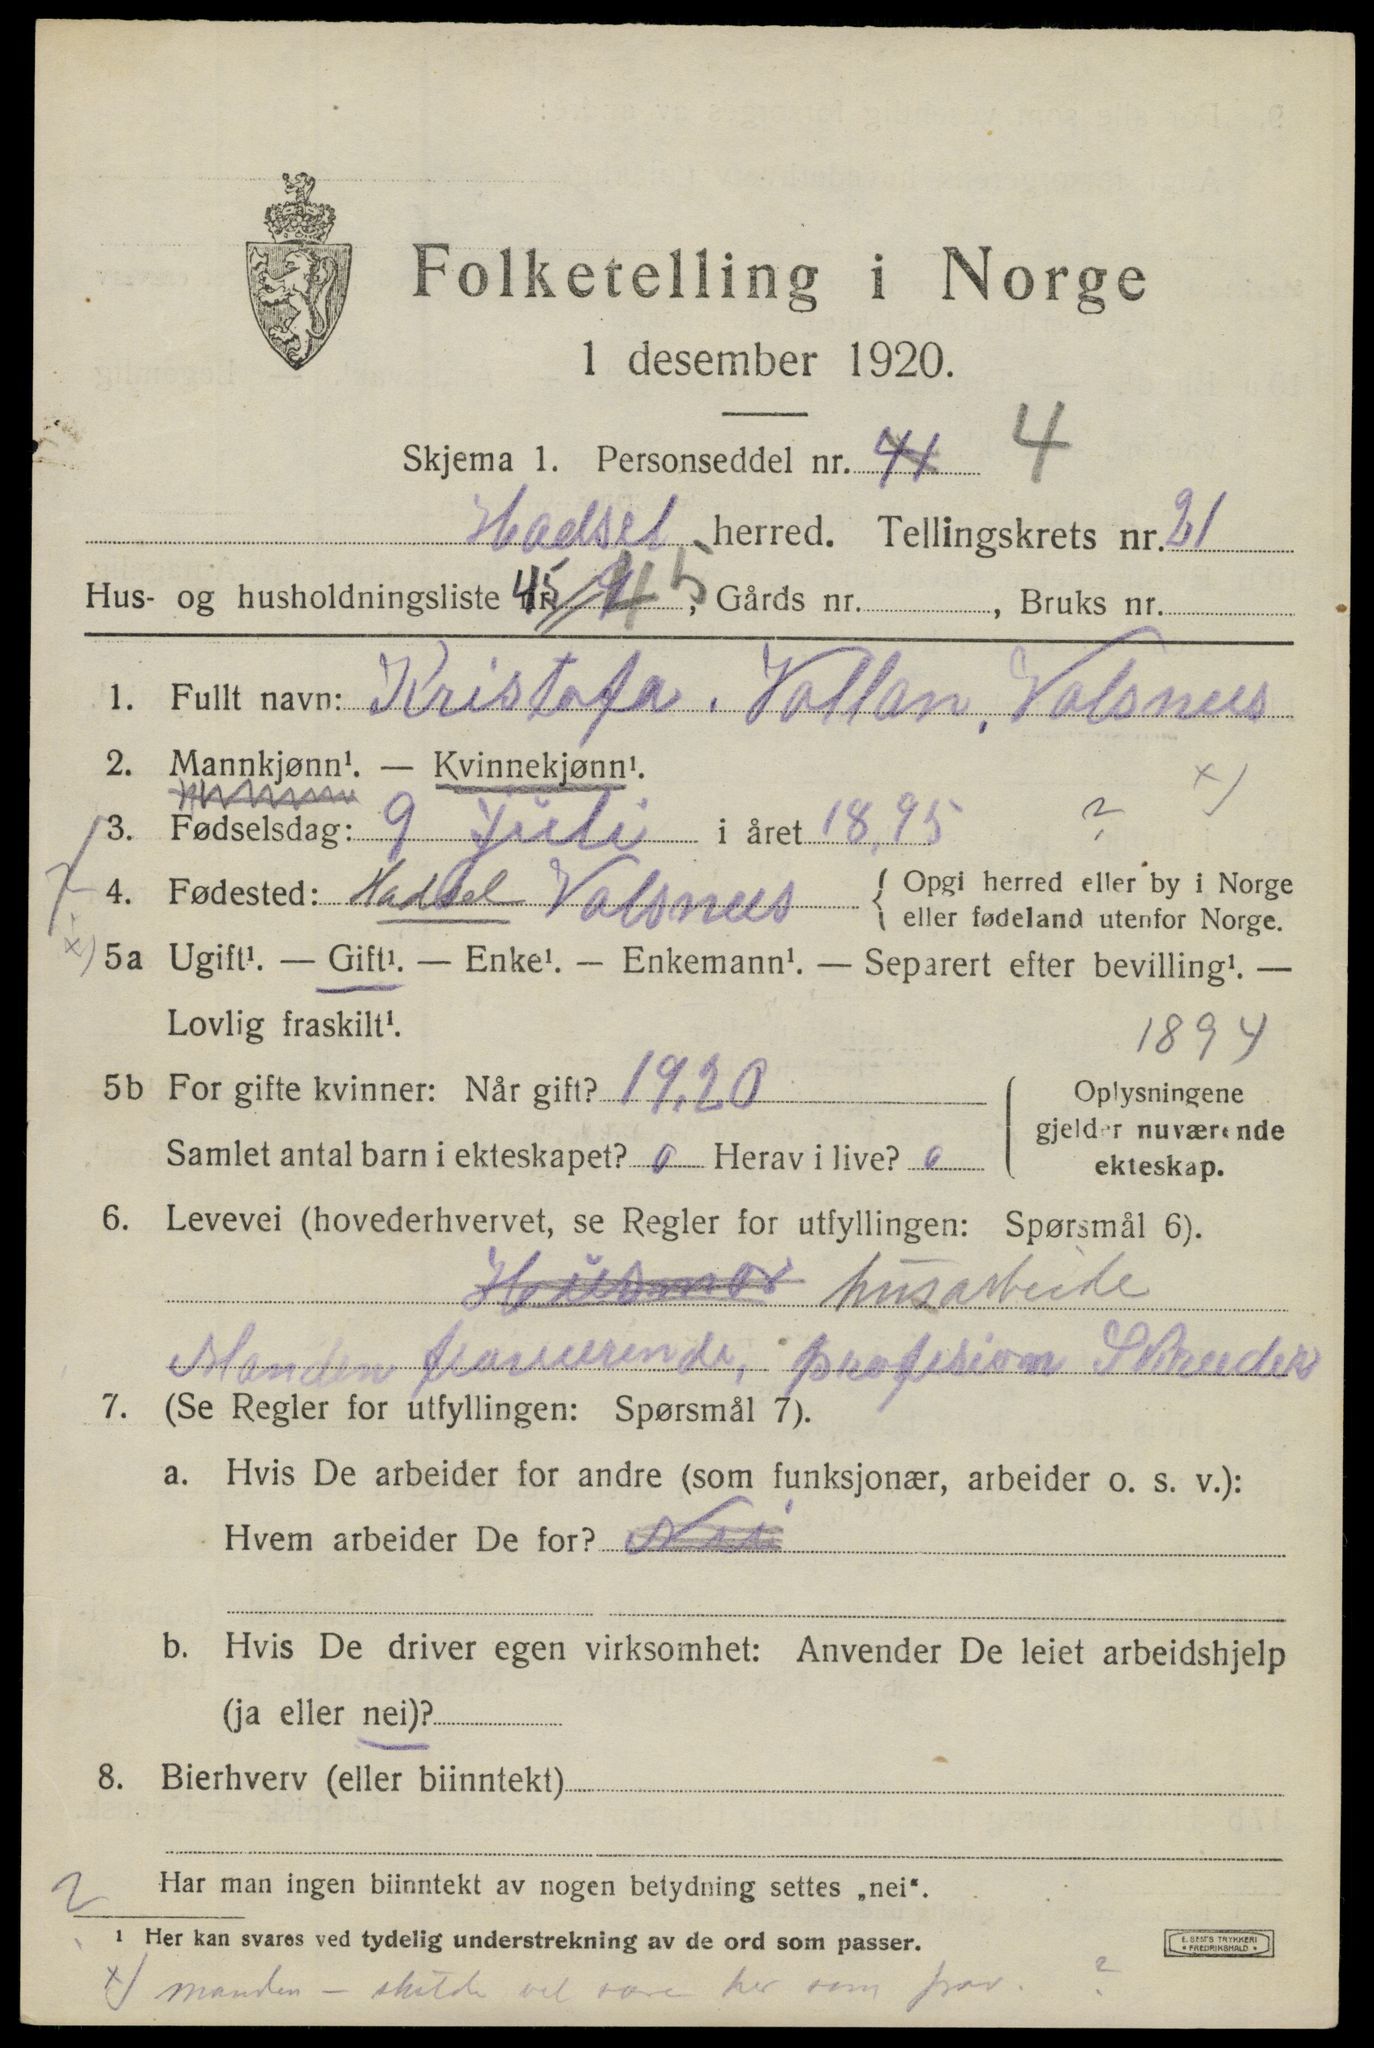 Folketelling i Norge
1 desember 1920.
Skjema 1. Personseddel nr. 4
Hadsel herred. Tellingskrets nr. 21
Hus- og husholdningsliste nr. 45, Gårds nr. , Bruks nr.
1. Fullt navn: Kristofa. Vollan, Volsnes
2. Mannkjønn¹. — Kvinnekjønn¹.
x)
3. Fødselsdag: 9 juli i året 1895 ?
4. Fødested: Hadsel Volsnes { Opgi herred eller by i Norge
eller fødeland utenfor Norge.
x) 5a Ugift¹. — Gift¹. — Enke¹. — Enkemann¹. — Separert efter bevilling¹. —
Lovlig fraskilt¹. 1894
5b For gifte kvinner: Når gift? 1920
Samlet antal barn i ekteskapet? 0 Herav i live? 0
Oplysningene
gjelder nuværende
ekteskap.
6. Levevei (hovederhvervet, se Regler for utfyllingen: Spørsmål 6).
Husmor husarbeide
Manden fraværende, profesion
7. (Se Regler for utfyllingen: Spørsmål 7).
a. Hvis De arbeider for andre (som funksjonær, arbeider o. s. v.):
Hvem arbeider De for? Nei
b. Hvis De driver egen virksomhet: Anvender De leiet arbeidshjelp
(ja eller nei)?
8. Bierhverv (eller biinntekt)
2
Har man ingen biinntekt av nogen betydning settes „nei“.
¹ Her kan svares ved tydelig understrekning av de ord som passer.
E. SEM'S TRYKKERI
FREDRIKSHALD
x) manden – skulde vel være her som frav. ?